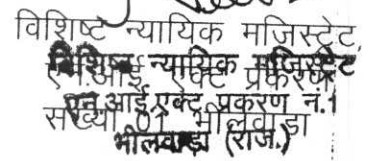 विशिष्ट न्यायिक मजिस्ट्रेट,
विशिष्ट न्यायिक मजिस्ट्रेट
एन.आई. एक्ट प्रकरण
एन.आई.एक्ट प्रकरण नं.1
संख्या भीलवाड़ा
भीलवाड़ा (राज.)